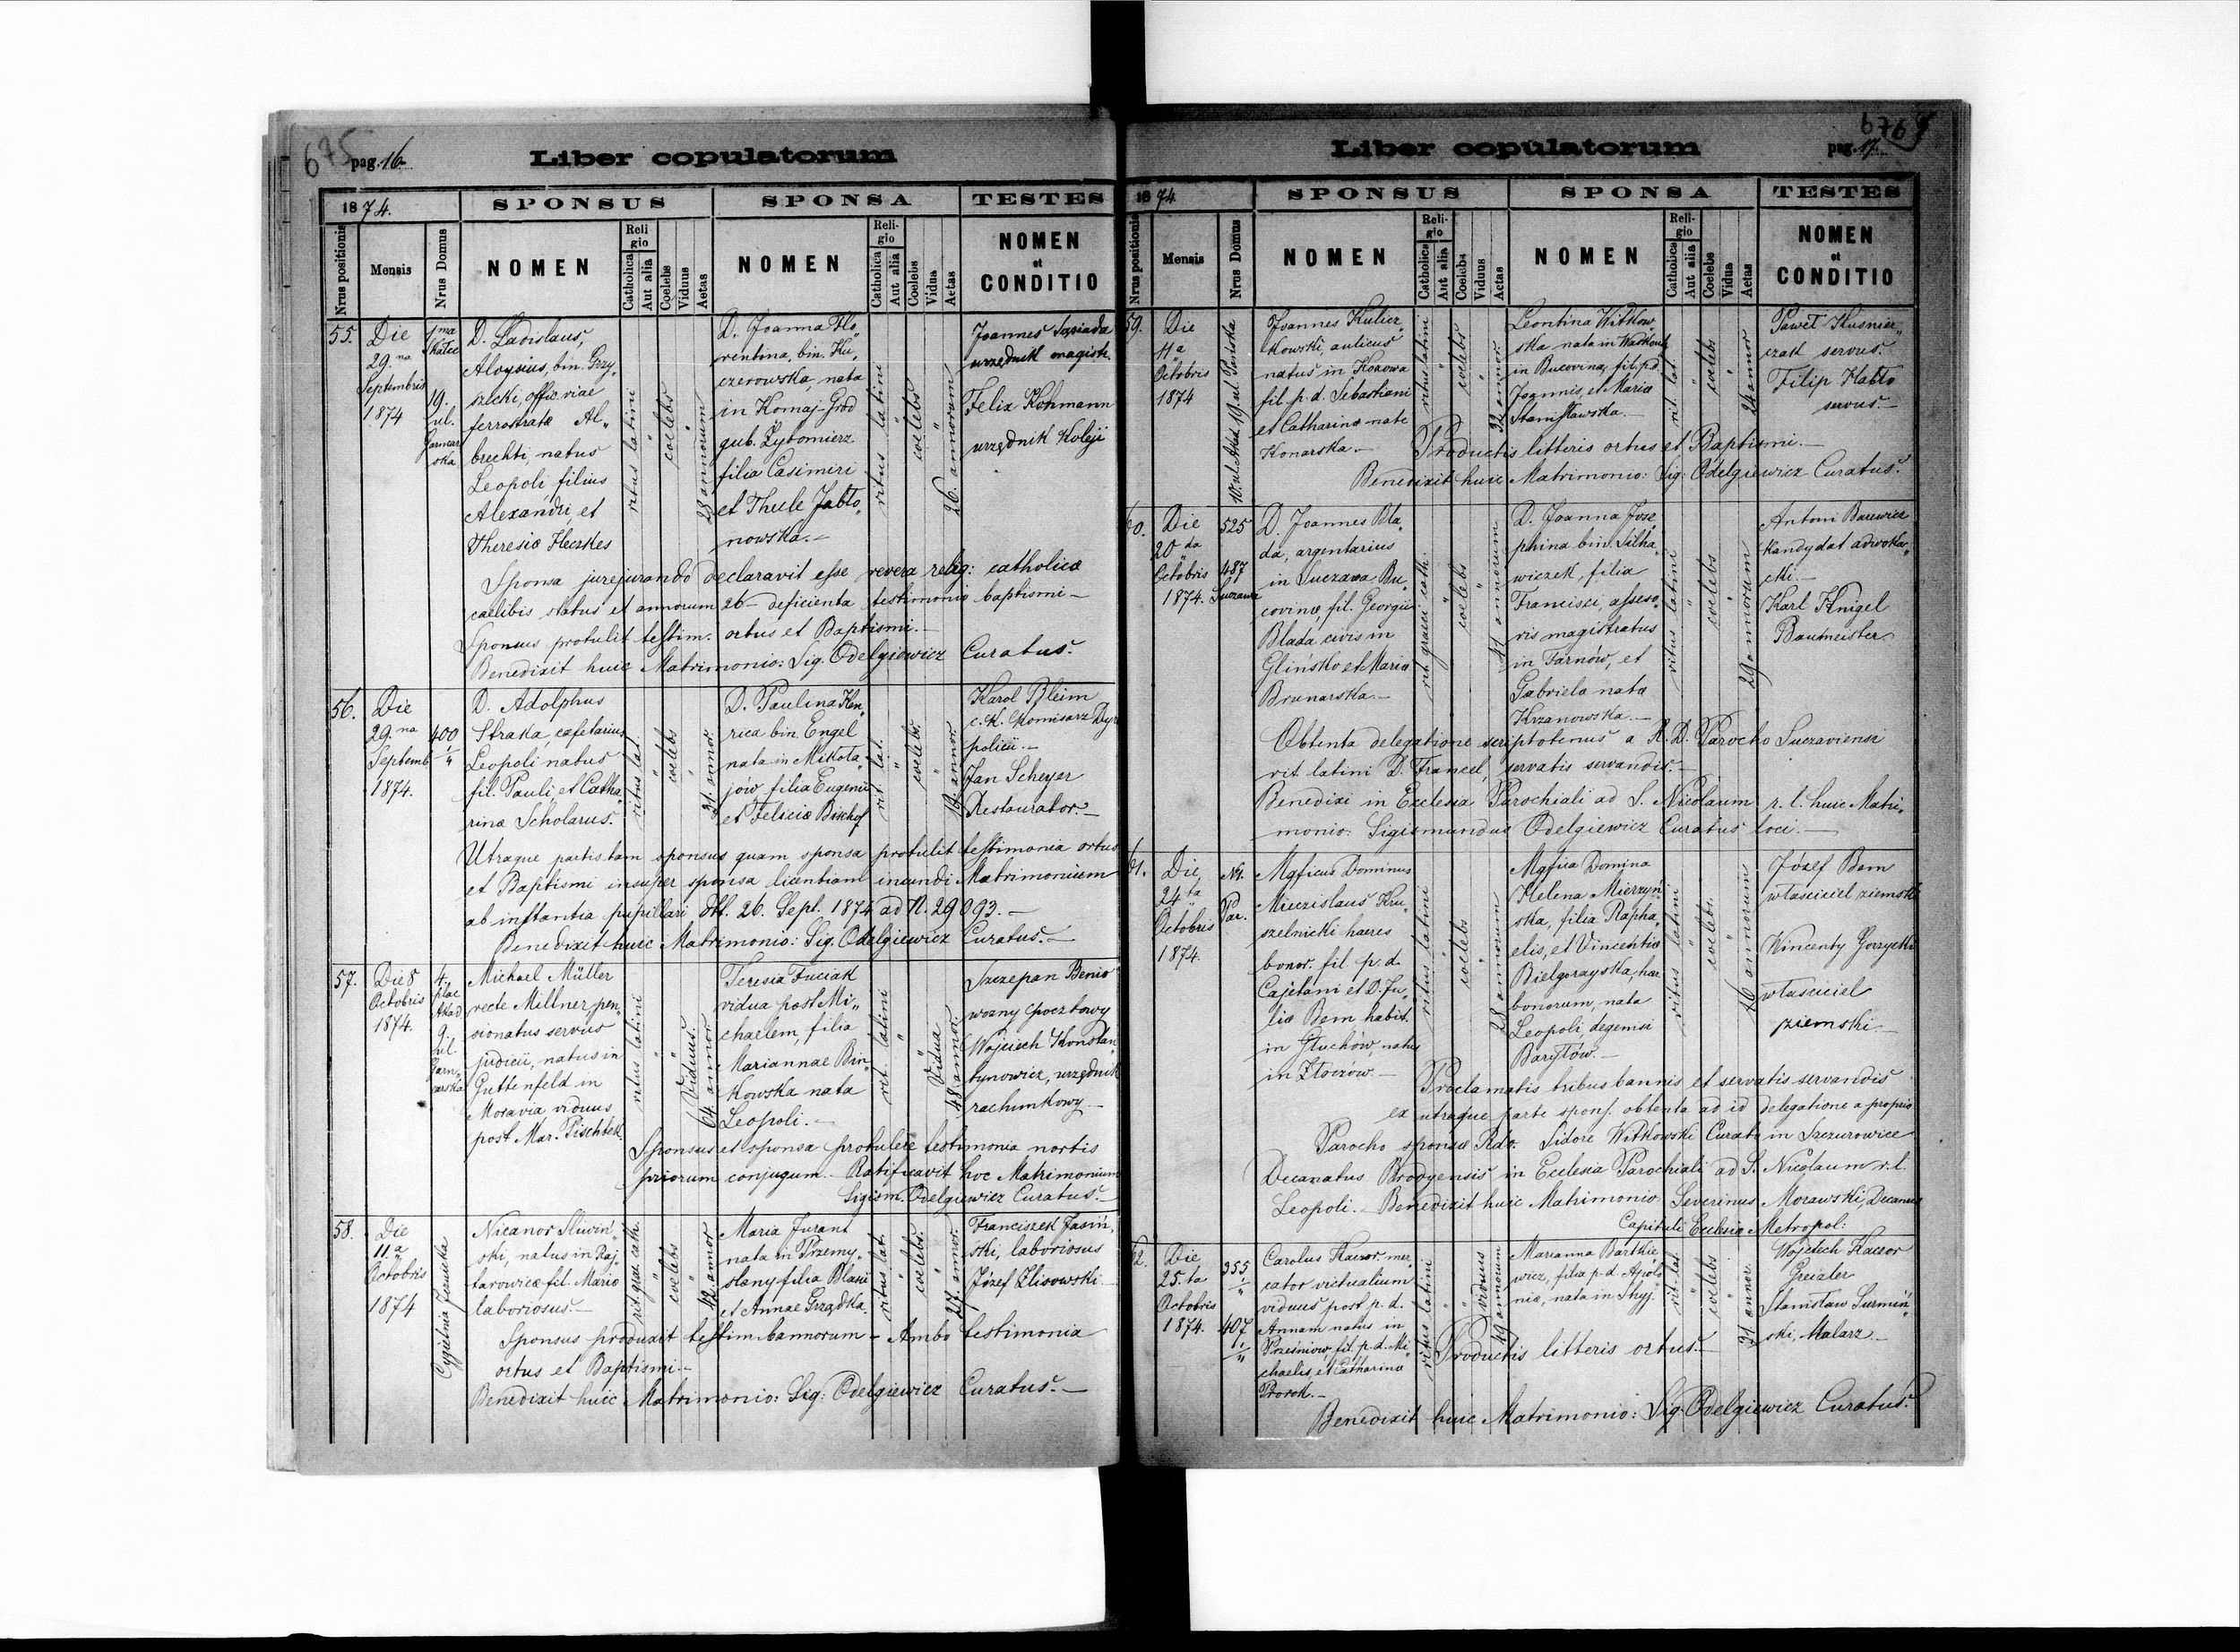 675
pag. 16
Liber copulatorum
1874.
SPONSUS
SPONSA
TESTES
Nrus positionis
Mensis
Nrus Domus
NOMEN
Religio
Catholica
Aut alia
Coelebs
Viduus
Aetas
NOMEN
Religio
Catholica
Aut alia
Coelebs
Vidua
Aetas
NOMEN
et
CONDITIO
55.
Die
29.na
Septembris
1874
1ma
19.
ul.
D. Ladislaus,
Aloysius, bin. Grzy„
szecki, offic. viae
ferrostratæ Al„
brechti, natus
Leopoli filius
Alexandri, et
Theresiæ Heczkes
ritus latini
coelebs
28 annorum
D. Joanna Flo„
rentina, bin. Ku„
czerowska, nata
in Komaj-Grod
gub. Zytomierz
filia Casimiri
et Theclæ Jabło„
nowska.-
ritus latini
coelebs
26. annorum
Joannes
urzędnik magistr.
Felix Kohmann
urzędnik Koleji
Sponsa jurejurando declaravit esse revera relig: catholicæ
caelibis status et annorum 26- deficienta testimonio baptismi-
Sponsus protulit testim. ortus et Baptismi.-
Benedixit huic Matrimonio: Sig. Odelgiewicz Curatus.
56.
Die
29.na
Septemb
1874.
400
D. Adolphus
Straka, cafetarius
Leopoli natus
fil. Pauli et Catha„
rinæ Scholarus.
ritus lat.
coelebs
31. annor.
D. Paulina Hen„
rica bin Engel
nata in Mikoła„
jów filia Eugenii
et Feliciæ Bischof
rit. lat.
coelebs
19. annor.
Karol Pfleim
c.k. Komisarz Dyr
policii.-
Jan Scheyer
Restaurator.-
Utraque partis tam sponsus quam sponsa protulit testimonia ortus
et Baptismi insuper sponsa licentiam ineundi Matrimonium
ab instantia pupillari dtt. 26. Sept. 1874 ad N. 29093.-
Benedixit huic Matrimonio: Sig. Odelgiewicz Curatus.-
57.
Die 8
Octobris
1874.
4.
plac
Akad
9.
ul.
Michael Müller
recte Millner pen„
sionatus servus
judicii, natus in
Guttenfeld in
Moravia viduus
post Mar. Pischtek.
ritus latini
Viduus.
64 annor
Teresia Fuciak
vidua post Mi„
chaelem, filia
Mariannae Bin„
kowska nata
Leopoli.-
rit latini
Vidua
48 annor.
Szczepan Benio
woźny pocztowy
Wojciech Konstan„
tynowicz, urzędnik
rachunkowy.-
Sponsus et sponsa protulere testimonia mortis
priorum conjugum.- Ratificavit hoc Matrimonium
Sigism. Odelgiewicz Curatus.-
58.
Die
11.a
Octobris
1874
Cegielnia
Nicanor Śliwiń„
ski, natus in Raj„
tarowice fil. Mariæ
laboriosus.-
rit. græc. cath.
coelebs
42 annor
Maria Jurant
nata in Przemy„
slany filia Blasii
et Annae Grządka.
ritus lat.
coelebs.
27. annor.
Franciszek Jasiń„
ski, laboriosus
Józef Zlisowski.
Sponsus produxit testim bannorum- Ambo testimonia
ortus et Baptismi.-
Benedixit huic Matrimonio: Sig: Odelgiewicz Curatus.-
676
pag. 17.
Liber copulatorum
1874
SPONSUS
SPONSA
TESTES
Nrus positionis
Mensis
Nrus Domus
NOMEN
Religio
Catholica
Aut alia
Coelebs
Viduus
Aetas
NOMEN
Religio
Catholica
Aut alia
Coelebs
Vidua
Aetas
NOMEN
et
CONDITIO
59.
Die
11a
Octobris
1874
10. ul. Akad. 19. ul. Pańska
Joannes Kulicz„
kowski, aulicus
natus in Kozowa
fil. p. d. Sebastiani
et Catharinæ natæ
Konarska.-
ritus latini
coelebs
32 annor.
Leontina Witkow„
ska nata in
in Bucovina, fil. p.d.
Joannis, et Mariæ
Stanisławska.-
rit. lat.
coelebs
24 annor
Paweł Kusnier„
czak servus.
Filip Habło
servus.-
Productis litteris ortus et Baptismi.-
Benedixit huic Matrimonio: Sig: Odelgiewicz Curatus.
60.
Die
20da
Octobris
1874.
525
487
Suczawa
D. Joannes Bla„
da, argentarius
in Suczawa Bu„
covinæ, fil. Georgii
Blada civis in
Glinsko et Mariæ
Brunarska.-
rit graeci cath.
coelebs
41 annorum
D. Joanna Jose„
phina bin. Silha„
wiczek, filia
Francisci, asseso„
ris magistratus
in Tarnów, et
Gabriela nata
Krzanowska.-
ritus latini
coelebs
29 annorum
Antoni Barewicz
kandydat adwoka„
cki.-
Karl Knigel
Baumeister
Obtenta delegatione scriptotenus a R. D. Parocho Suczaviensi
rit. latini D. Francel, servatis servandis.-
Benedixi in Ecclesia Parochiali ad S. Nicolaum r. l. huic Matri„
monio: Sigismundus Odelgiewicz Curatus loci.-
61.
Die
24ta
Octobris
1874.
N1.
Par.
Mgficus Dominus
Miecislaus Kru„
szelnicki haeres
bonor. fil. p. d.
Cajetani et D. Ju„
liæ Bem habit.
in Głuchów, natus
in Złoczów.-
ritus latini
coelebs
28 annorum
Mgfica Domina
Helena Mierzyń„
ska, filia Rapha„
elis, et Vincentiæ
Bielgorayska, hær.
bonorum, nata
Leopoli degensi
Baryłów.-
ritus latini
coelebs.
16 annorum
Józef Bem
właściciel ziemski
Wincenty Gorzycki
właściciel
ziemski.-
Proclamatis tribus bannis et servatis servandis
ex utraque parte spons. obtenta ad id delegatione a proprio
Parocho sponsæ Rdo. Sidore Witkowski Curato in Szczurowice
Decanatus Brodyensis in Ecclesia Parochiali ad S. Nicolaum r.l.
Leopoli. Benedixit huic Matrimonio Severinus Morawski, Decanus
Capituli Ecclesiæ Metropol:
62.
Die
25.ta
Octobris
1874.
355
407
Carolus Kaczor, mer„
cator victualium
viduus post p. d.
Annam natus in
fil. p. d. Mi„
chaelis, et Catharinæ
Prorok.-
ritus latini
viduus
49 annorum
Marianna Bartkie„
wicz, filia p. d. Apolo„
niæ, nata in Stryj.
rit lat.
coelebs
31 annor.
Wojciech Kaczor
Greisler
Stanisław Surmiń„
ski, Malarz.-
Productis litteris ortus.-
Benedixit huic Matrimonio: Sig. Odelgiewicz Curatus.